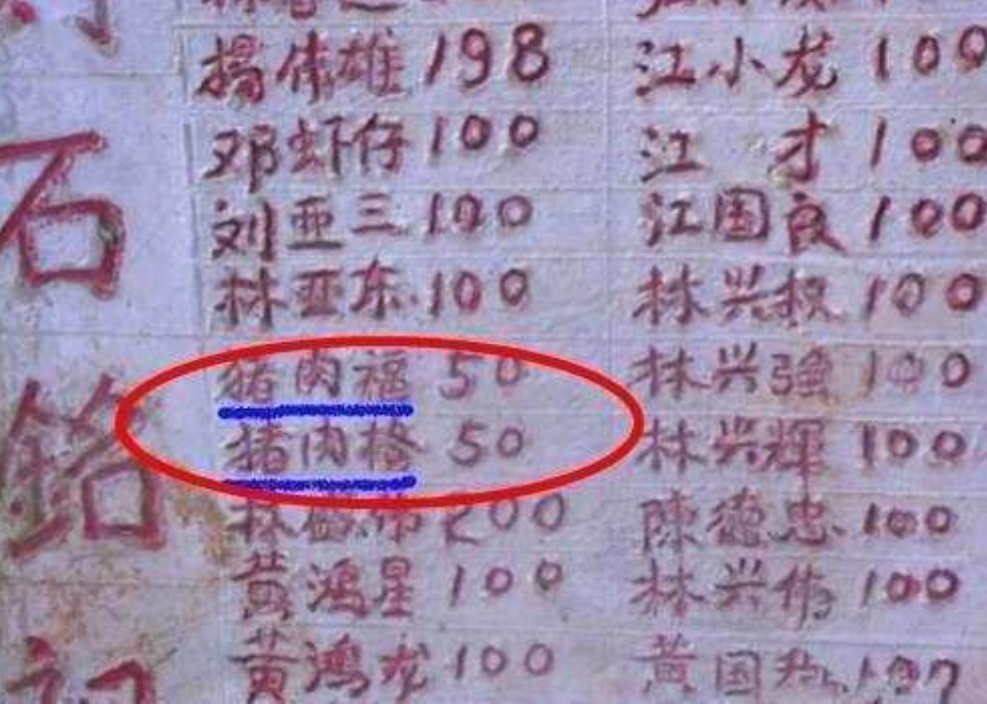 石
銘
楊伟雄 198 江小龙 100
邓虾仔 100 江 才 100
刘亚三 100 江国良 100
林亚东 100 林兴权 100
猪肉福 50 林兴強 100
猪肉格 50 林兴輝 100
林 200 陳德忠 100
黄鸿星 100 林兴伟 100
黄鸿龙 100 黄国